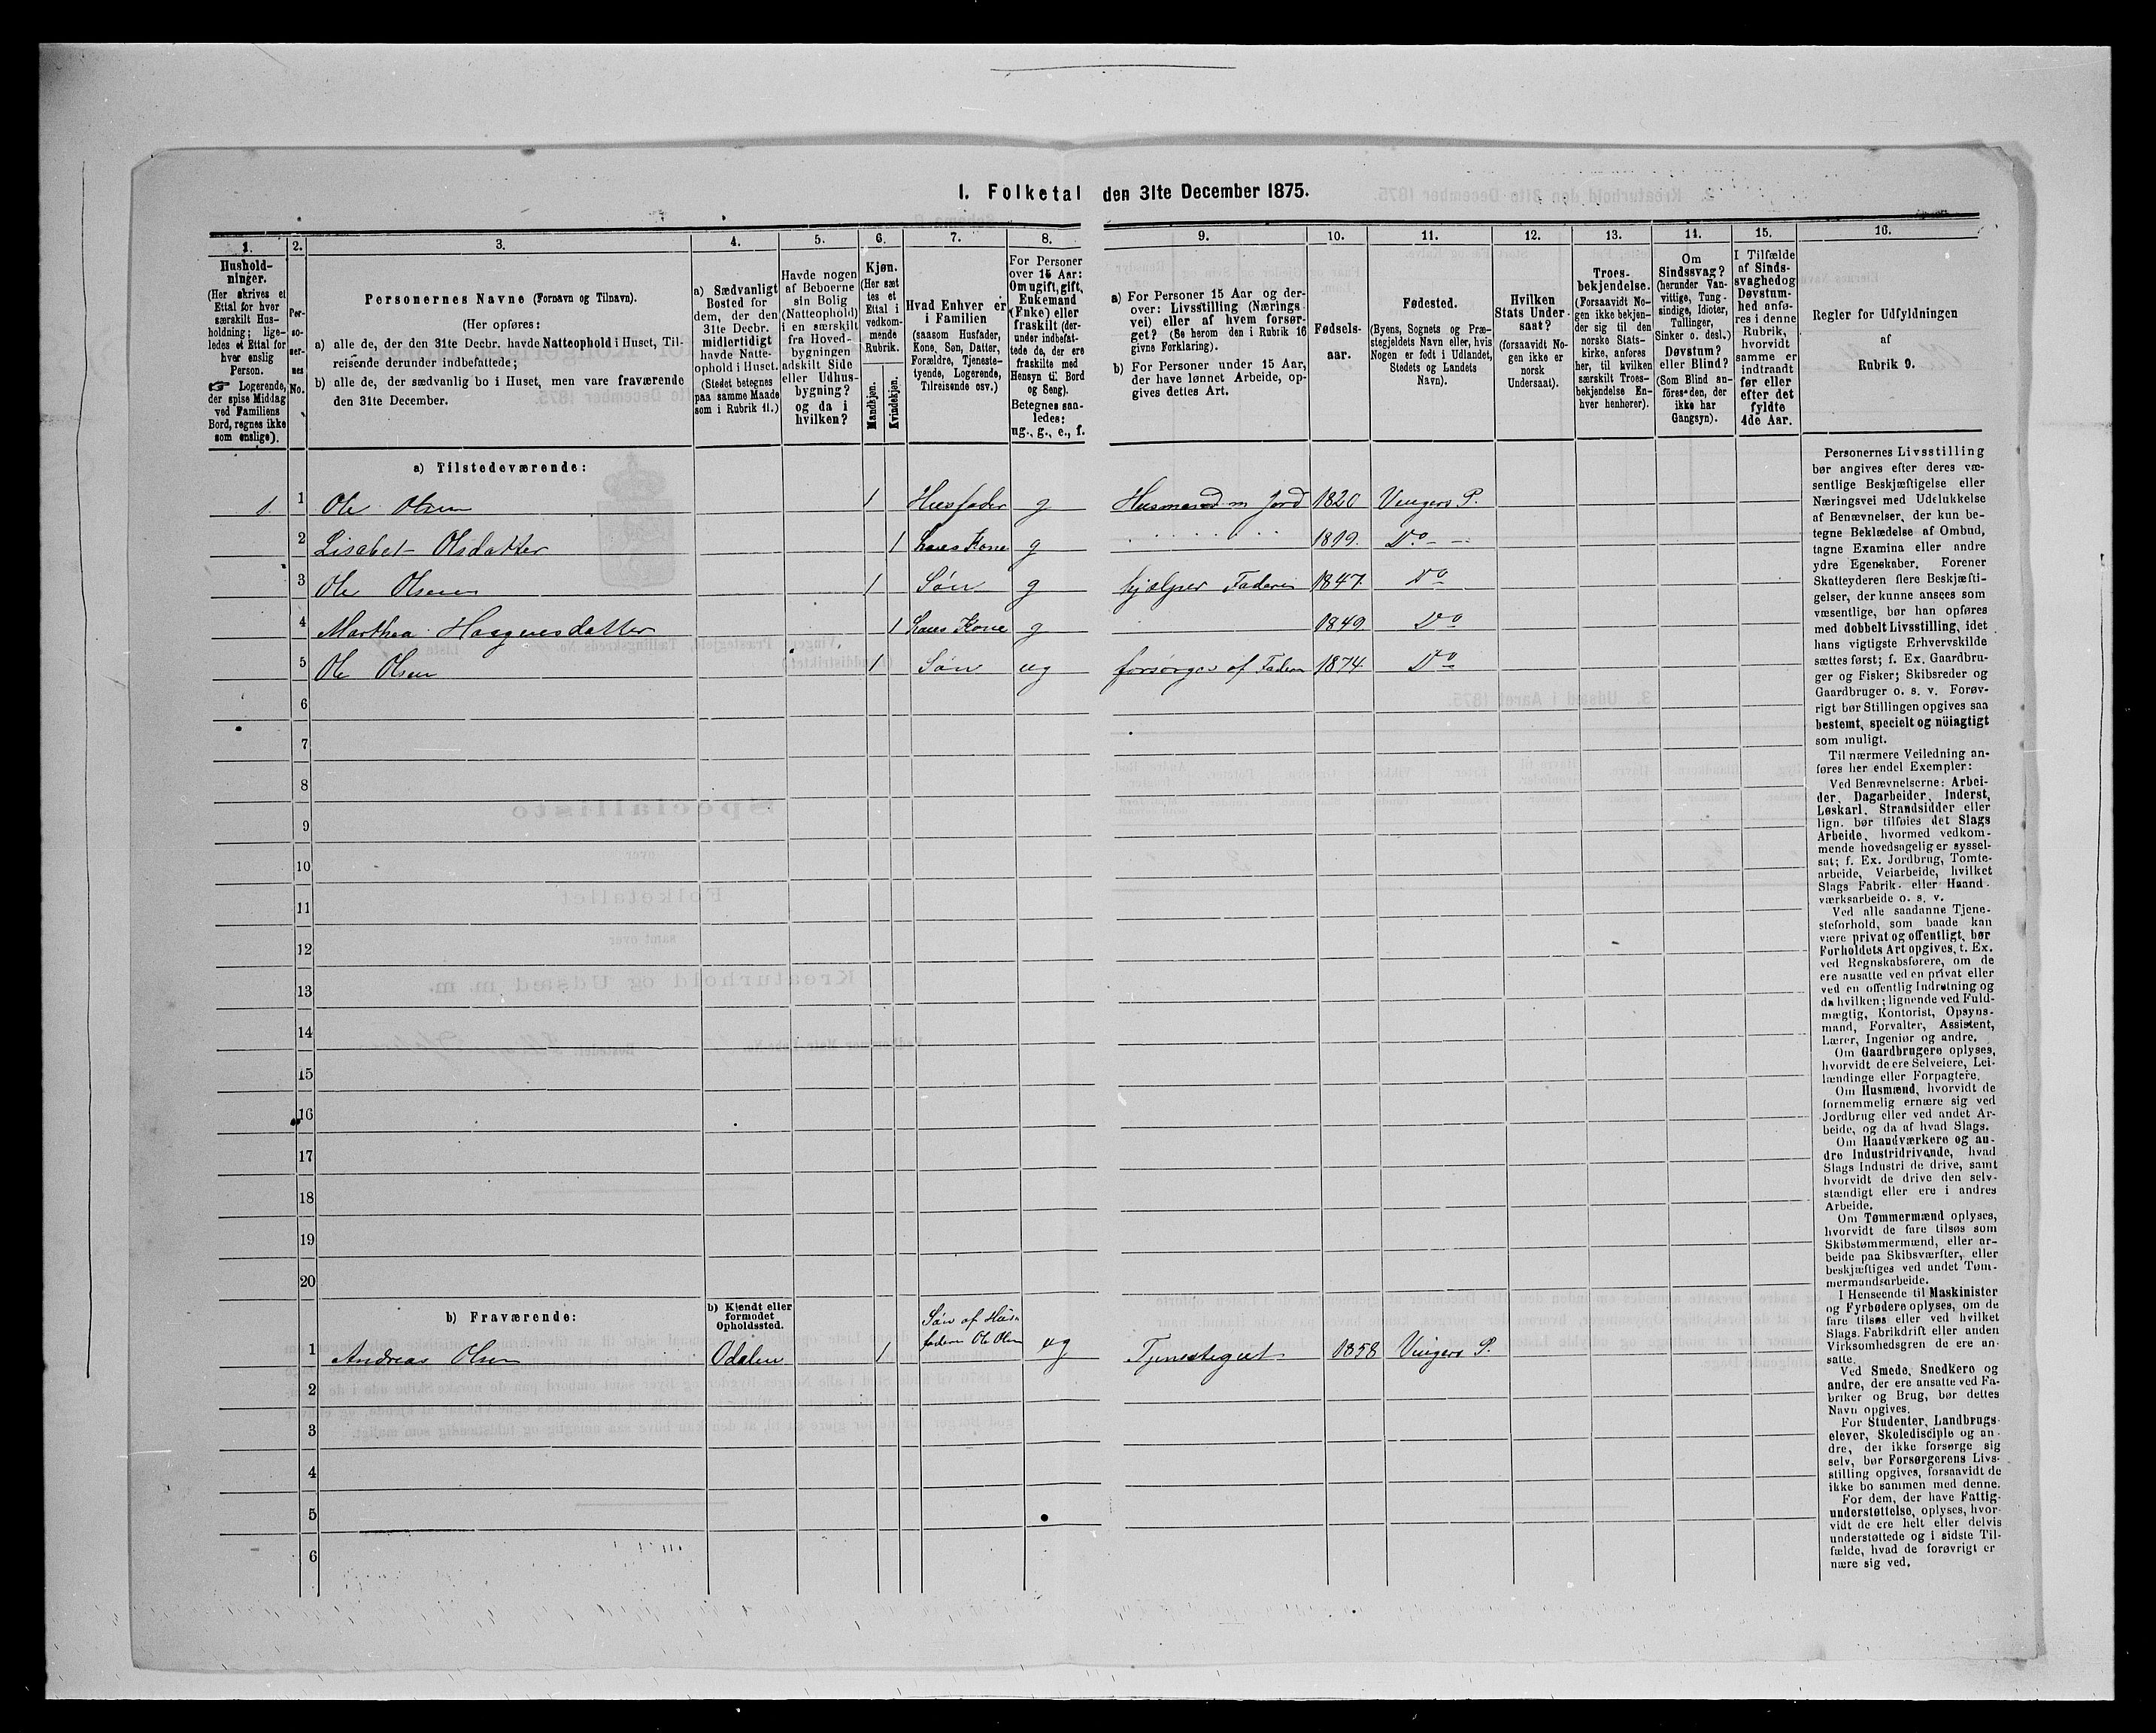 I. Folketal den 31te December 1875.
1. 2. 3. 4. 5. 6. 7. 8. 9. 10. 11. 12. 13. 14. 15. 16.
Hushold-
ninger.
(Her skrives et
Ettal for hver
særskilt Hus-
holdning; lige-
ledes et Ettal for
hver enslig
Person.
☞ Logerende,
der spise Middag
ved Familiens
Bord, regnes ikke
som enslige).
Per-
so-
ner-
nes
No.
Personernes Navne (Fornavn og Tilnavn).
(Her opføres:
a) alle de, der den 31te Decbr. havde Natteophold i Huset, Til-
reisende derunder indbefattede;
b) alle de, der sædvanlig bo i Huset, men vare fraværende
den 31te December.
a) Sædvanligt
Bosted for
dem, der den
31te Decbr.
midlertidigt
havde Natte-
ophold i Huset.
(Stedet betegnes
paa samme Maade
som i Rubrik 11.)
Havde nogen
af Beboerne
sin Bolig
(Natteophold)
i en særskilt
fra Hoved-
bygningen
adskilt Side
eller Udhus-
bygning?
og da i
hvilken?
Kjøn.
(Her sæt-
tes et
Ettal i
vedkom-
mende
Rubrik.
Mandkjøn.
Kvindekjøn.
Hvad Enhver er
i Familien
(saasom Husfader,
Kone, Søn, Datter,
Forældre, Tjeneste-
tyende, Logerende,
Tilreisende osv.)
For Personer
over 15 Aar:
Om ugift, gift,
Enkemand
(Enke) eller
fraskilt (der-
under indbefat-
tede de, der ere
fraskilte med
Hensyn til Bord
og Seng).
Betegnes saa-
ledes:
ug., g., e., f.
a) For Personer 15 Aar og der-
over: Livsstilling (Nærings-
vei) eller af hvem forsør-
get? (Se herom den i Rubrik 16
givne Forklaring).
b) For Personer under 15 Aar,
der have lønnet Arbeide, op-
gives dettes Art.
Fødsels-
aar.
Fødested.
(Byens, Sognets og Præ-
stegjeldets Navn eller, hvis
Nogen er født i Udlandet,
Stedets og Landets
Navn).
Hvilken
Stats Under-
saat?
(forsaavidt No-
gen ikke er
norsk
Undersaat).
Troes-
bekjendelse.
(Forsaavidt No-
gen ikke bekjen-
der sig til den
norske Stats-
kirke, anføres
her, til hvilken
særskilt Troes-
bekjendelse En-
hver henhører).
Om
Sindssvag?
(herunder Van-
vittige, Tung-
sindige, Idioter,
Tullinger,
Sinker o. desl.)
Døvstum?
eller Blind?
(Som Blind an-
føres den, der
ikke har
Gangsyn).
I Tilfælde
af Sinds-
svaghed og
Døvstum-
hed anfø-
res i denne
Rubrik,
hvorvidt
samme er
indtraadt
før eller
efter det
fyldte
4de Aar.
Regler for Udfyldningen
af
Rubrik 9.
a) Tilstedeværende:
1. 1 Ole Olsen 1 Husfader g Husmand m Jord 1820 Vingers P.
2 Lisabet Olsdatter 1 hans Kone g 1819. Do
3 Ole Olsen 1 Søn g hjelper Faderen 1847. Do
4 Marthea Haagensdatter 1 hans Kone g 1849. Do
5 Ole Olsen 1 Søn ug forsørges af Faderen 1874. Do
6
7
8
9
10
11
12
13
14
15
16
17
18
19
20
b) Fraværende:
b) Kjendt eller
formodet
Opholdssted.
1 Andreas Olsen Odalen 1 Søn af Hus-
faderen Ole Olsen ug Tjenestegut 1858 Vingers P.
2
3
4
5
6
Personernes Livsstilling
bør angives efter deres væ-
sentlige Beskjæftigelse eller
Næringsvei med Udelukkelse
af Benævnelser, der kun be-
tegne Beklædelse af Ombud,
tagne Examina eller andre
ydre Egenskaber. Forener
Skatteyderen flere Beskjæfti-
gelser, der kunne ansees som
væsentlige, bør han opføres
med dobbelt Livsstilling, idet
hans vigtigste Erhvervskilde
sættes først; f. Ex. Gaardbru-
ger og Fisker; Skibsreder og
Gaardbruger o. s. v. Forøv-
rigt bør Stillingen opgives saa
bestemt, specielt og nöiagtigt
som muligt.
Til nærmere Veiledning an-
føres her endel Exempler:
Ved Benævnelserne: Arbei-
der, Dagarbeider, Inderst,
Løskarl, Strandsidder eller
lign. bør tilføies det Slags
Arbeide, hvormed vedkom-
mende hovedsagelig er syssel-
sat; f. Ex. Jordbrug, Tomte-
arbeide, Veiarbeide, hvilket
Slags Fabrik- eller Haand-
værksarbeide o. s. v.
Ved alle saadanne Tjene-
steforhold, som baade kan
være privat og offentligt, bør
Forholdets Art opgives, t. Ex.
ved Regnskabsførere, om de
ere ansatte ved en privat eller
ved en offentlig Indretning og
da hvilken; lignende ved Fuld-
mægtig, Kontorist, Opsyns-
mand, Forvalter, Assistent,
Lærer, Ingeniør og andre.
Om Gaardbrugere oplyses,
hvorvidt de ere Selveiere, Lei-
lændinge eller Forpagtere.
Om Husmænd, hvorvidt de
fornemmelig ernære sig ved
Jordbrug eller ved andet Ar-
beide, og da af hvad Slags.
Om Haandværkere og an-
dre Industridrivande, hvad
Slags Industri de drive, samt
hvorvidt de drive den selv-
stændigt eller ere i andres
Arbeide.
Om Tømmermænd oplyses,
hvorvidt de fare tilsøs som
Skibstømmermænd, eller ar-
beide paa Skibsværfter, eller
beskjæftiges ved andet Tøm-
mermandsarbeide.
I Henseende til Maskinister
og Fyrbødere oplyses, om de
fare tilsøs eller ved hvilket
Slags Fabrikdrift eller anden
Virksomhedsgren de ere an-
satte.
Ved Smede, Snedkere og
andre, der ere ansatte ved Fa-
briker og Brug, bør dettes
Navn opgives.
For Studenter, Landbrugs-
elever, Skoledisciple og an-
dre, der ikke forsørge sig
selv, bør Forsørgerens Livs-
stilling opgives, forsaavidt de
ikke bo sammen med denne.
For dem, der have Fattig-
understøttelse, oplyses, hvor-
vidt de ere helt eller delvis
understøttede og i sidste Til-
fælde, hvad de forøvrigt er-
nære sig ved.